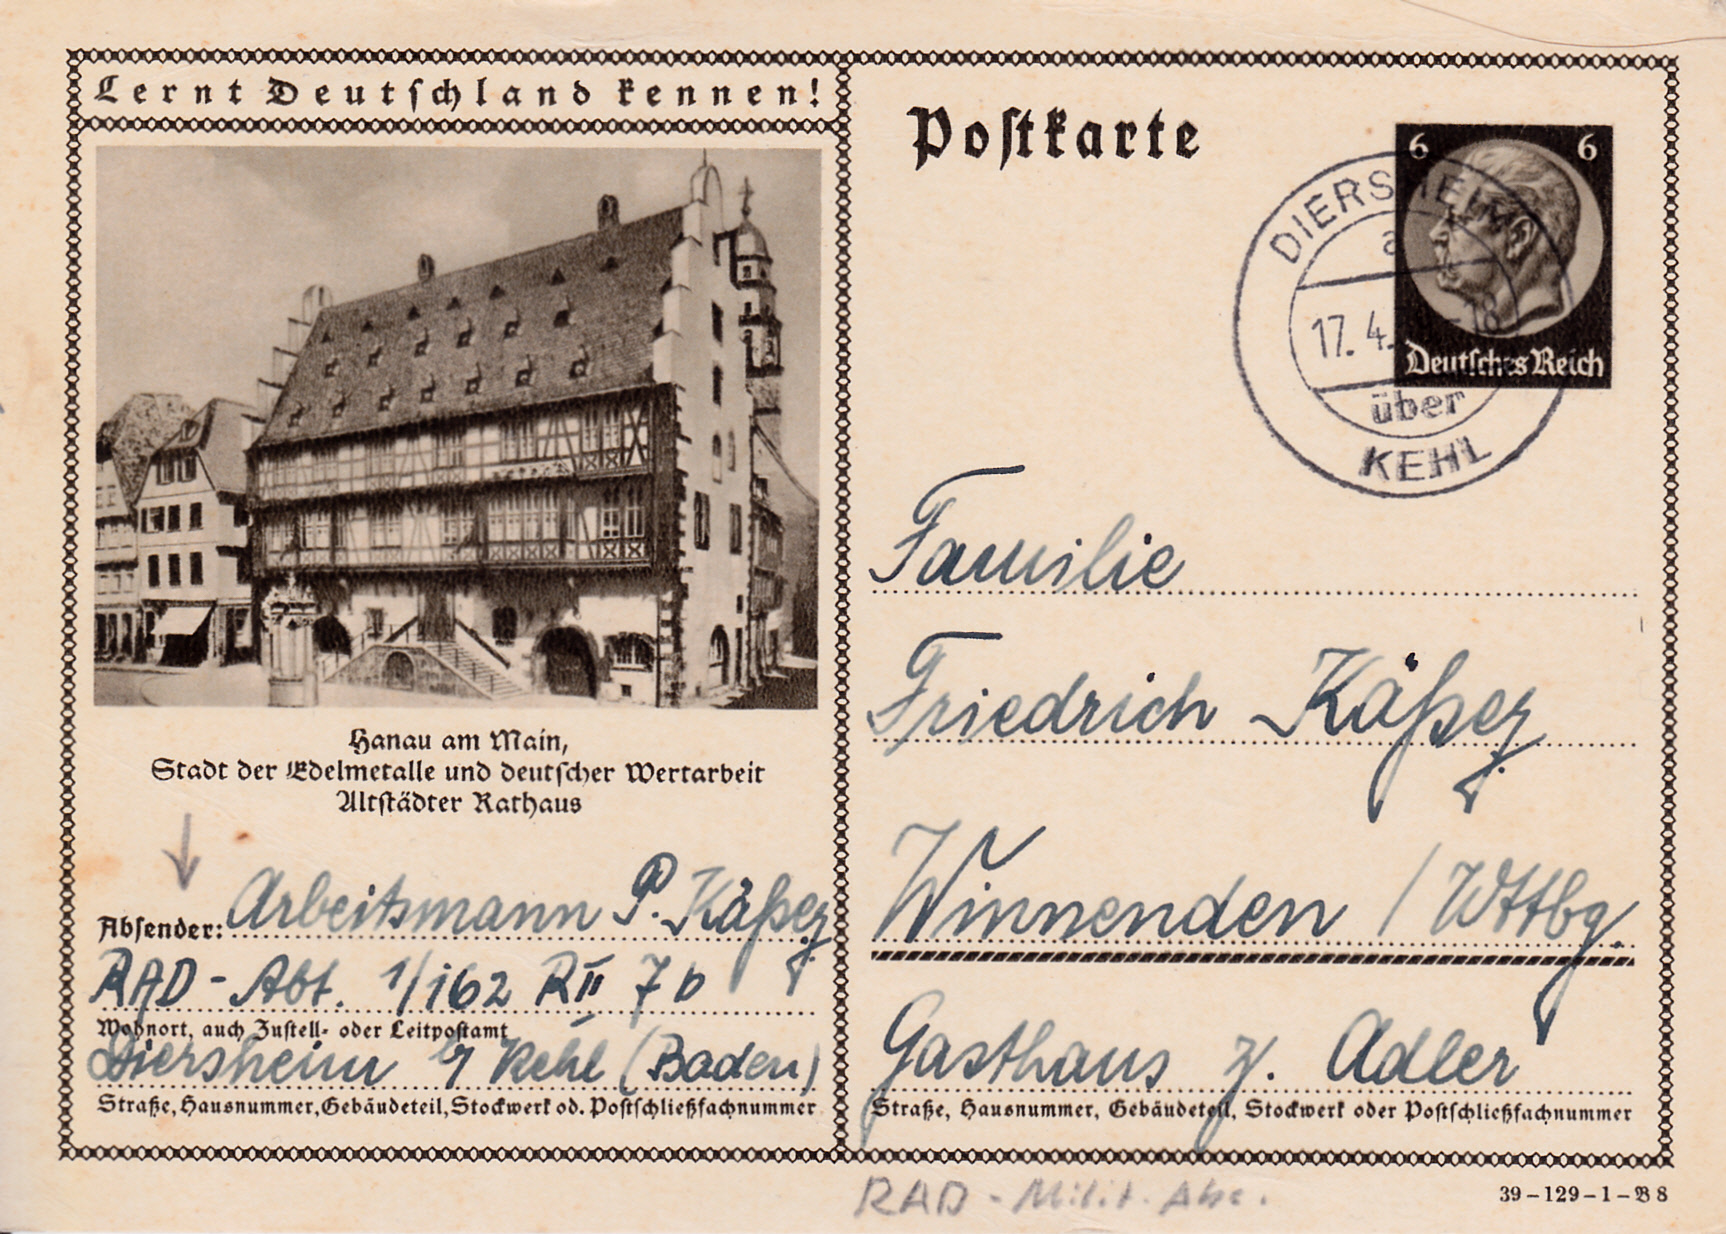 Lernt Deutschland kennen!
Hanau am Main,
Stadt der Edelmetalle und deutscher Wertarbeit
Altstädter Rathaus
Absender: Arbeitsmann P. Käßer
RAD - Abt. 1/162 RII 7b
Wohnort, auch Zustell- oder Leitpostamt
Diersheim b/ Kehl (Baden)
Straße, Hausnummer, Gebäudeteil, Stockwerk od. Postschließfachnummer
Postkarte
6 6
Deutsches Reich
DIERSHEIM
a
17.4.
über
KEHL
Familie
Friedrich Käßer
Winnenden / Wttbg.
Gasthaus z. Adler
Straße, Hausnummer, Gebäudeteil, Stockwerk oder Postschließfachnummer
RAD - Milit. Abs.
39-129-1-B 8